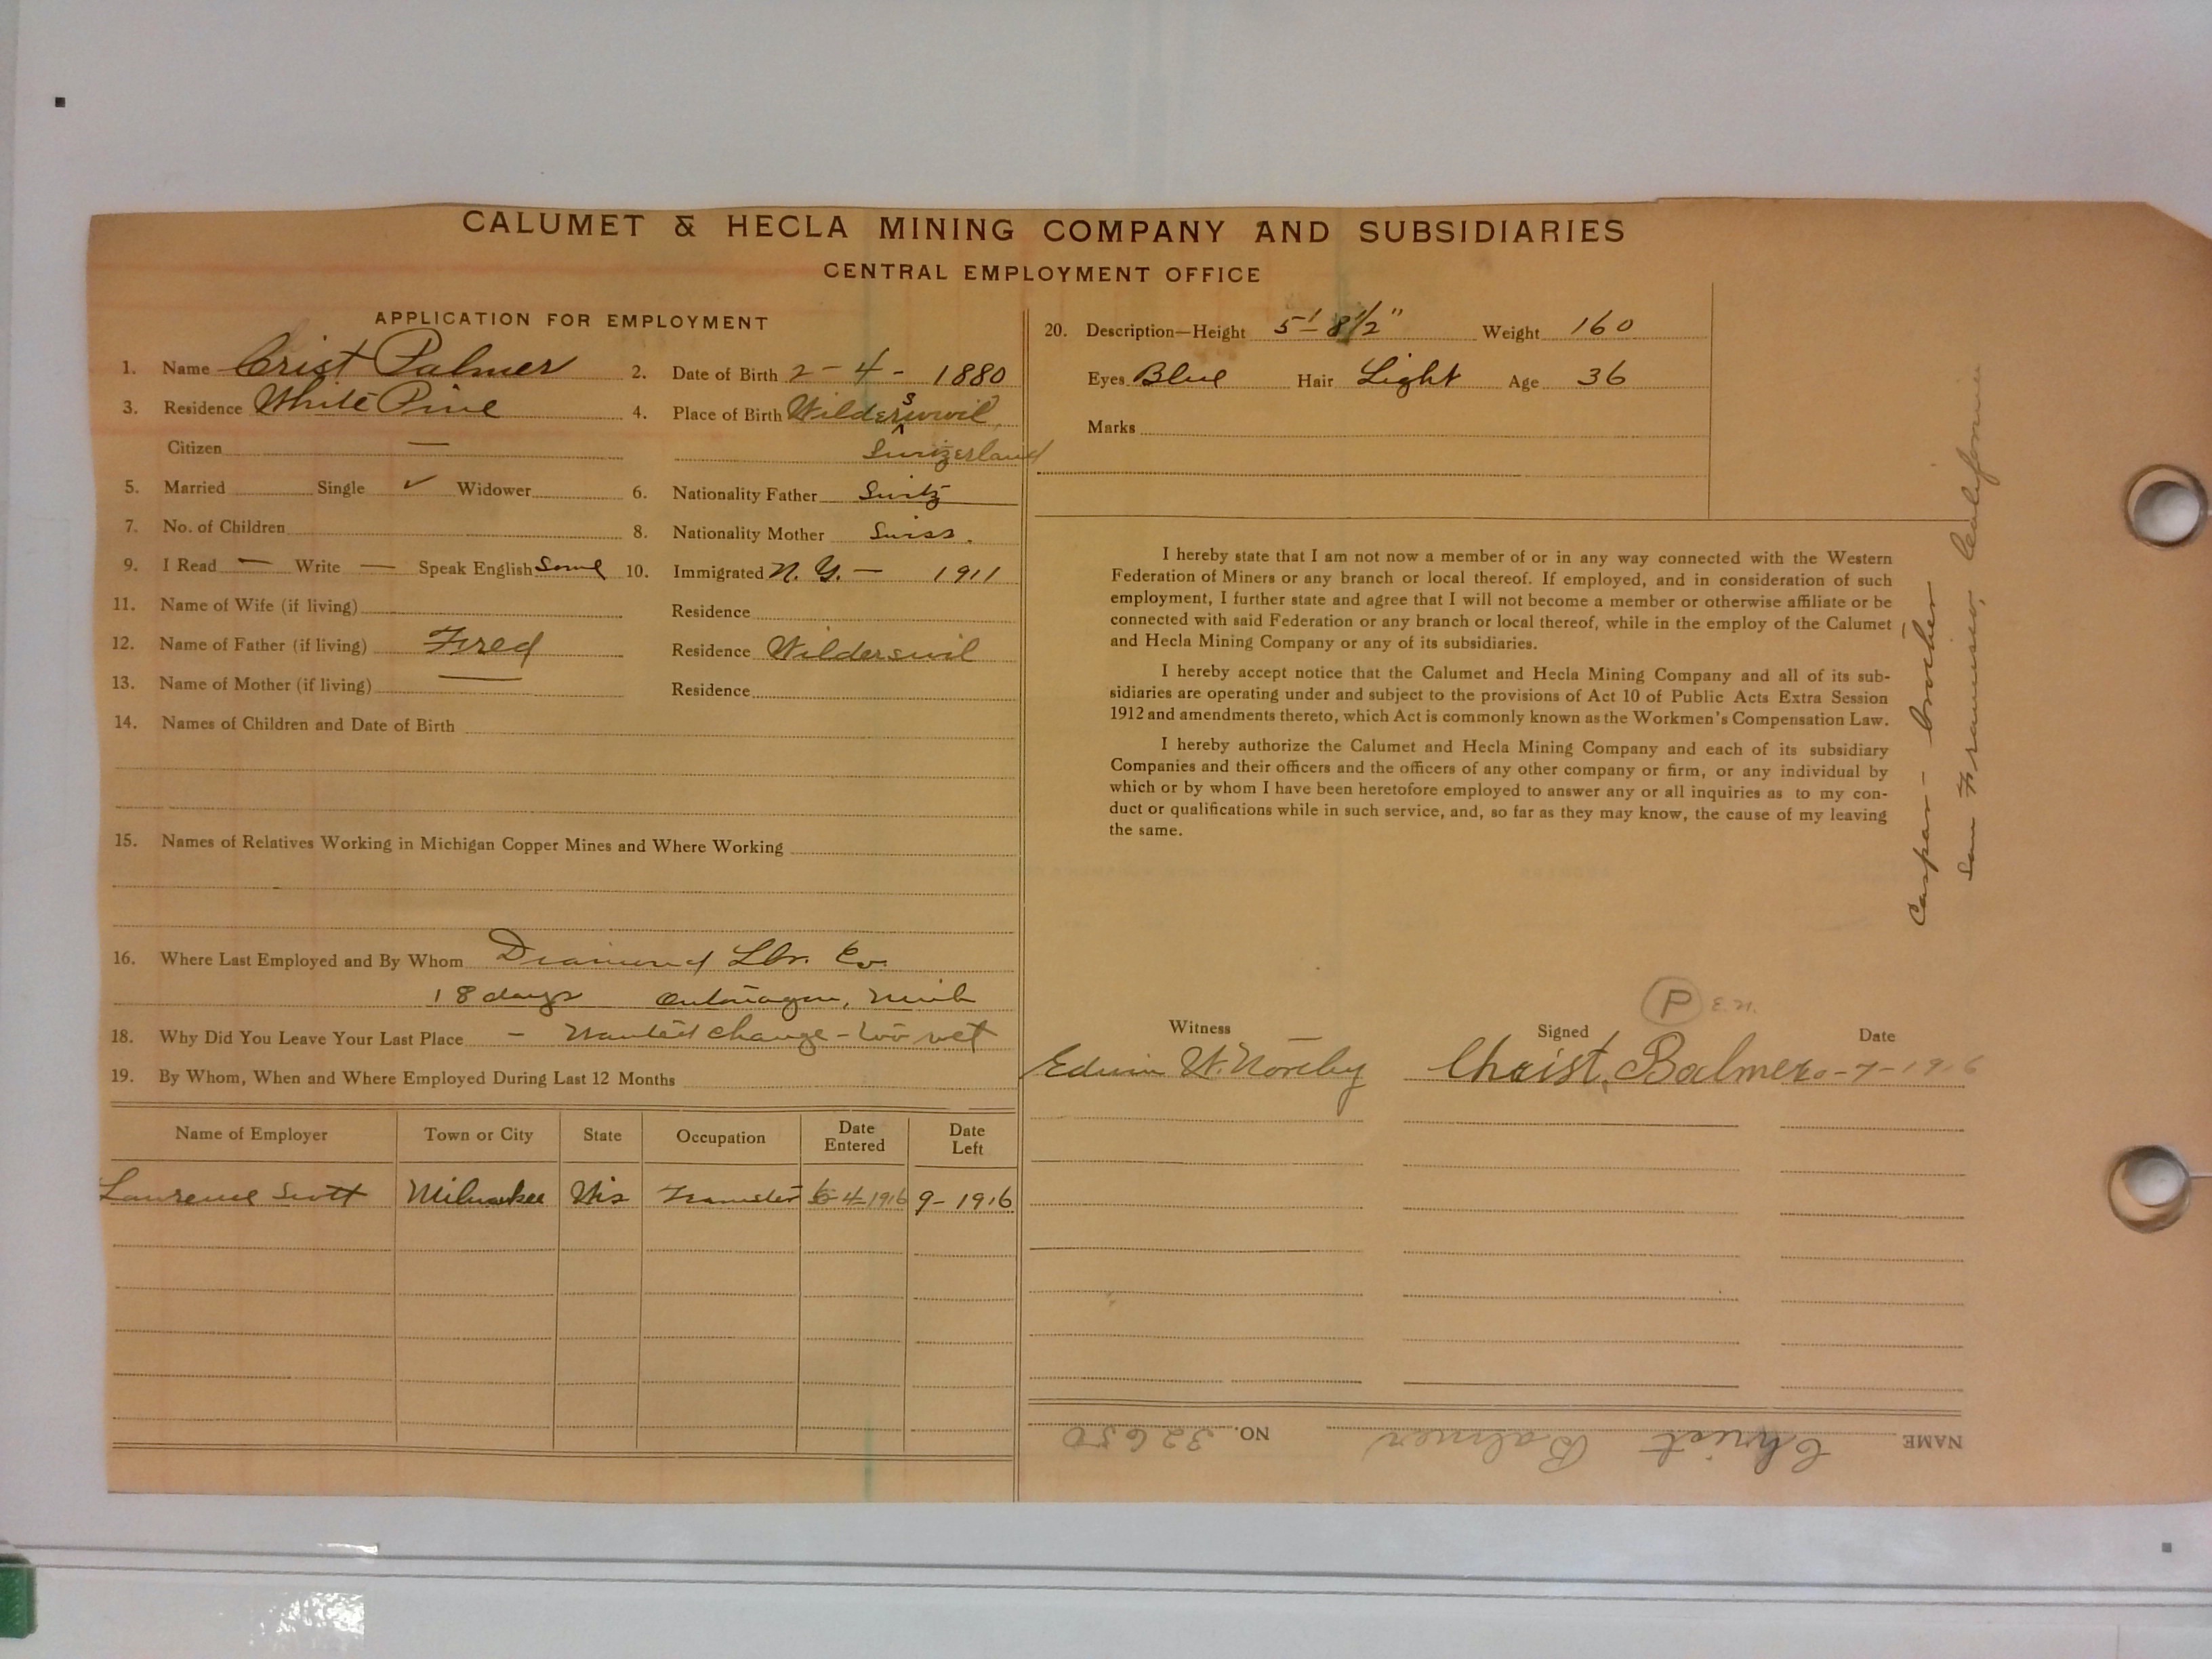 CALUMET & HECLA MINING COMPANY AND SUBSIDIARIES
CENTRAL EMPLOYMENT OFFICE
APPLICATION FOR EMPLOYMENT
1. Name Crist Palmer 2. Date of Birth 2 - 4 - 1880
3. Residence White Pine 4. Place of Birth Wilderswwil,
Citizen — Swizerland
5. Married Single ✓ Widower 6. Nationality Father Switz
7. No. of Children 8. Nationality Mother Swiss.
9. I Read — Write — Speak English Some 10. Immigrated N. Y. — 1911
11. Name of Wife (if living) Residence
12. Name of Father (if living) Fred Residence Wilderswil
13. Name of Mother (if living) — Residence
14. Names of Children and Date of Birth
15. Names of Relatives Working in Michigan Copper Mines and Where Working
16. Where Last Employed and By Whom Diamond Lbr. Co.
18 days Ontonagon, Mich
18. Why Did You Leave Your Last Place - Wanted change - too wet
19. By Whom, When and Where Employed During Last 12 Months
Name of Employer Town or City State Occupation Date Entered Date Left
Lawrence Scott Milwakee Wis Teamster 4-1916 9-1916
20. Description—Height 5' 8 1/2" Weight 160
Eyes Blue Hair Light Age 36
Marks
I hereby state that I am not now a member of or in any way connected with the Western
Federation of Miners or any branch or local thereof. If employed, and in consideration of such
employment, I further state and agree that I will not become a member or otherwise affiliate or be
connected with said Federation or any branch or local thereof, while in the employ of the Calumet
and Hecla Mining Company or any of its subsidiaries.
I hereby accept notice that the Calumet and Hecla Mining Company and all of its sub-
sidiaries are operating under and subject to the provisions of Act 10 of Public Acts Extra Session
1912 and amendments thereto, which Act is commonly known as the Workmen's Compensation Law.
I hereby authorize the Calumet and Hecla Mining Company and each of its subsidiary
Companies and their officers and the officers of any other company or firm, or any individual by
which or by whom I have been heretofore employed to answer any or all inquiries as to my con-
duct or qualifications while in such service, and, so far as they may know, the cause of my leaving
the same.
Caspar - brother
San Francisco, California
P E.N.
Witness Signed Date
Edwin W. Noreby Christ Balmer -7-1916
NAME Christ Balmer NO. 32650